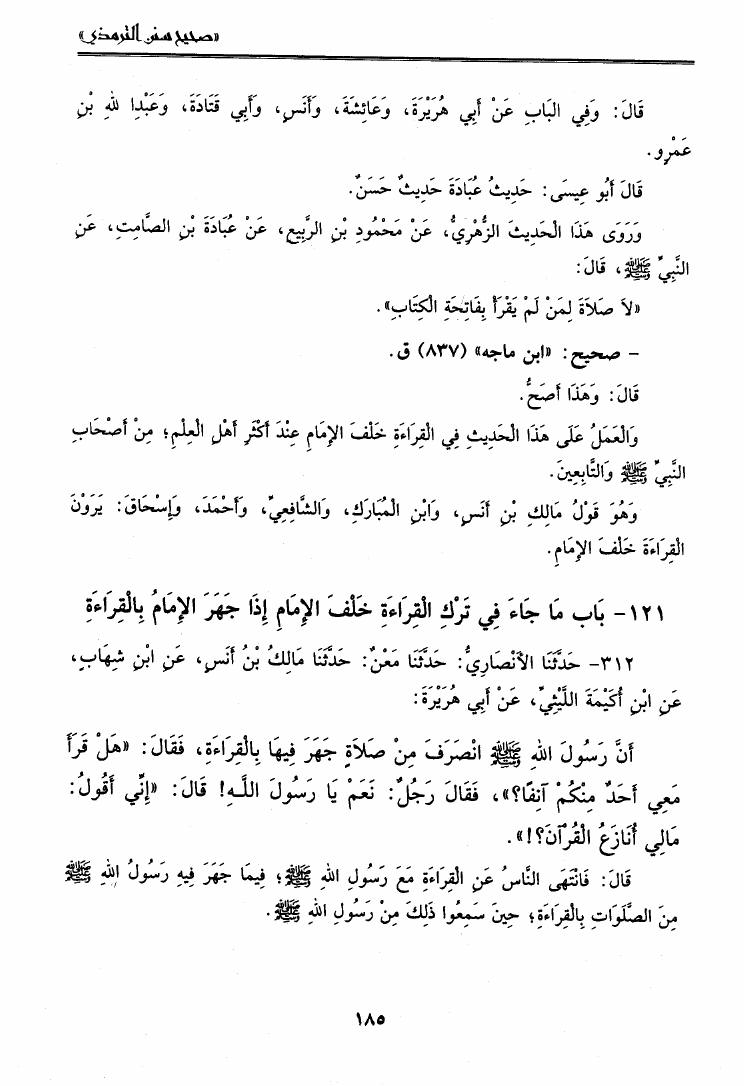 «صحيح سنن الترمذي»
قَالَ: وَفِي البَابِ عَنْ أَبِي هُرَيْرَةَ، وَعَائِشَةَ، وَأَنَسٍ، وَأَبِي قَتَادَةَ، وَعَبْدِا للهِ بْنِ
عَمْرٍو.
قَالَ أَبُو عِيسَى: حَدِيثُ عُبَادَةَ حَدِيثٌ حَسَنٌ.
وَرَوَى هَذَا الْحَدِيثَ الزُّهْرِيُّ، عَنْ مَحْمُودِ بْنِ الرَّبِيعِ، عَنْ عُبَادَةَ بْنِ الصَّامِتِ، عَنِ
النَّبِيِّ ﷺ، قَالَ:
«لاَ صَلاَةَ لِمَنْ لَمْ يَقْرَأْ بِفَاتِحَةِ الْكِتَابِ».
– صحيح: «ابن ماجه» (٨٣٧) ق.
قَالَ: وَهَذَا أَصَحُّ.
وَالْعَمَلُ عَلَى هَذَا الْحَدِيثِ فِي الْقِرَاءَةِ خَلْفَ الإِمَامِ عِنْدَ أَكْثَرِ أَهْلِ الْعِلْمِ؛ مِنْ أَصْحَابِ
النَّبِيِّ ﷺ وَالتَّابِعِينَ.
وَهُوَ قَوْلُ مَالِكِ بْنِ أَنَسٍ، وَابْنِ الْمُبَارَكِ، وَالشَّافِعِيِّ، وَأَحْمَدَ، وَإِسْحَاقَ: يَرَوْنَ
الْقِرَاءَةَ خَلْفَ الإِمَامِ.
١٢١- بَاب مَا جَاءَ فِي تَرْكِ الْقِرَاءَةِ خَلْفَ الإِمَامِ إِذَا جَهَرَ الإِمَامُ بِالْقِرَاءَةِ
٣١٢- حَدَّثَنَا الأَنْصَارِيُّ: حَدَّثَنَا مَعْنٌ: حَدَّثَنَا مَالِكُ بْنُ أَنَسٍ، عَنِ ابْنِ شِهَابٍ،
عَنِ ابْنِ أُكَيْمَةَ اللَّيْثِيِّ، عَنْ أَبِي هُرَيْرَةَ:
أَنَّ رَسُولَ اللهِ ﷺ انْصَرَفَ مِنْ صَلاَةٍ جَهَرَ فِيهَا بِالْقِرَاءَةِ، فَقَالَ: «هَلْ قَرَأَ
مَعِي أَحَدٌ مِنْكُمْ آنِفًا؟»، فَقَالَ رَجُلٌ: نَعَمْ يَا رَسُولَ اللَّهِ! قَالَ: «إِنِّي أَقُولُ:
مَالِي أُنَازَعُ الْقُرْآنَ؟!».
قَالَ: فَانْتَهَى النَّاسُ عَنِ الْقِرَاءَةِ مَعَ رَسُولِ اللهِ ﷺ؛ فِيمَا جَهَرَ فِيهِ رَسُولُ اللهِ ﷺ
مِنَ الصَّلَوَاتِ بِالْقِرَاءَةِ؛ حِينَ سَمِعُوا ذَلِكَ مِنْ رَسُولِ اللهِ ﷺ.
١٨٥